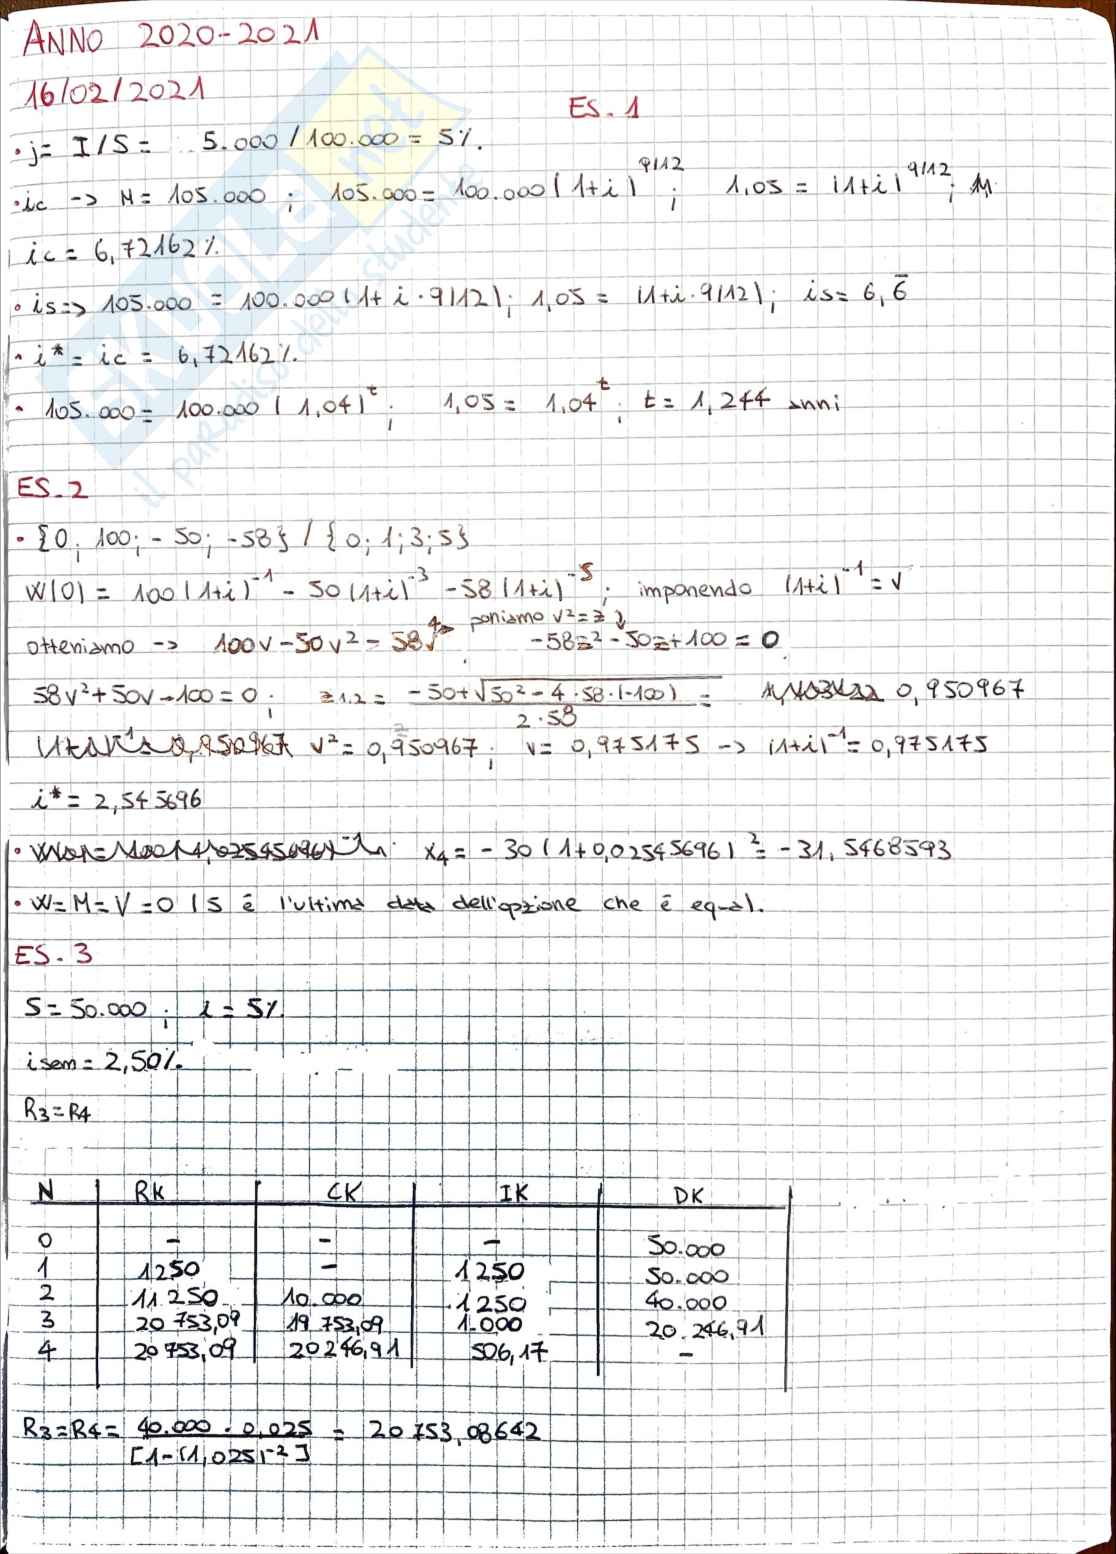 ANNO 2020-2021
16/02/2021
ES. 1
• j= I/S = 5.000/100.000 = 5%.
• ic -> M= 105.000 ; 105.000= 100.000(1+i)^9/12 ; 1,05 = (1+i)^9/12 ;
ic = 6,72162%
• is=> 105.000 = 100.000(1+ i · 9/12); 1,05 = (1+i·9/12); is= 6,6̅
• i* = ic = 6,72162%.
• 105.000= 100.000 (1,04)^t ; 1,05 = 1,04^t ; t= 1,244 anni
ES. 2
• {0; 100; - 50; -58} / {0; 1; 3; 5}
W(0) = 100(1+i)^-1 - 50(1+i)^-3 - 58(1+i)^-5 ; imponendo (1+i)^-1 = V
otteniamo -> 100v-50v^2-58v^4 -> poniamo v^2=z ↓ -58z^2-50z+100=0
58v^2+50v-100=0 ; z1.2 = -50+√50^2-4·58·(-100) / 2·58 = 0,950967
v^2= 0,950967 ; v= 0,975175 -> (1+i)^-1= 0,975175
i*= 2,545696
• x4= - 30(1+0,02545696)^2= -31,5468593
• W=M=V=0 / 5 è l'ultima data dell'opzione che è equal.
ES. 3
S= 50.000 ; i = 5%
i sem = 2,50%.
R3=R4
N RK CK IK DK
0 - - - 50.000
1 1250 - 1250 50.000
2 11 250 10.000 1250 40.000
3 20 753,09 19 753,09 1.000 20.246,91
4 20 753,09 20 246,91 506,17 -
R3=R4= 40.000 · 0,025 / [1-(1,025)^-2] = 20 753,08642
skuola.net
il paradiso dello studente